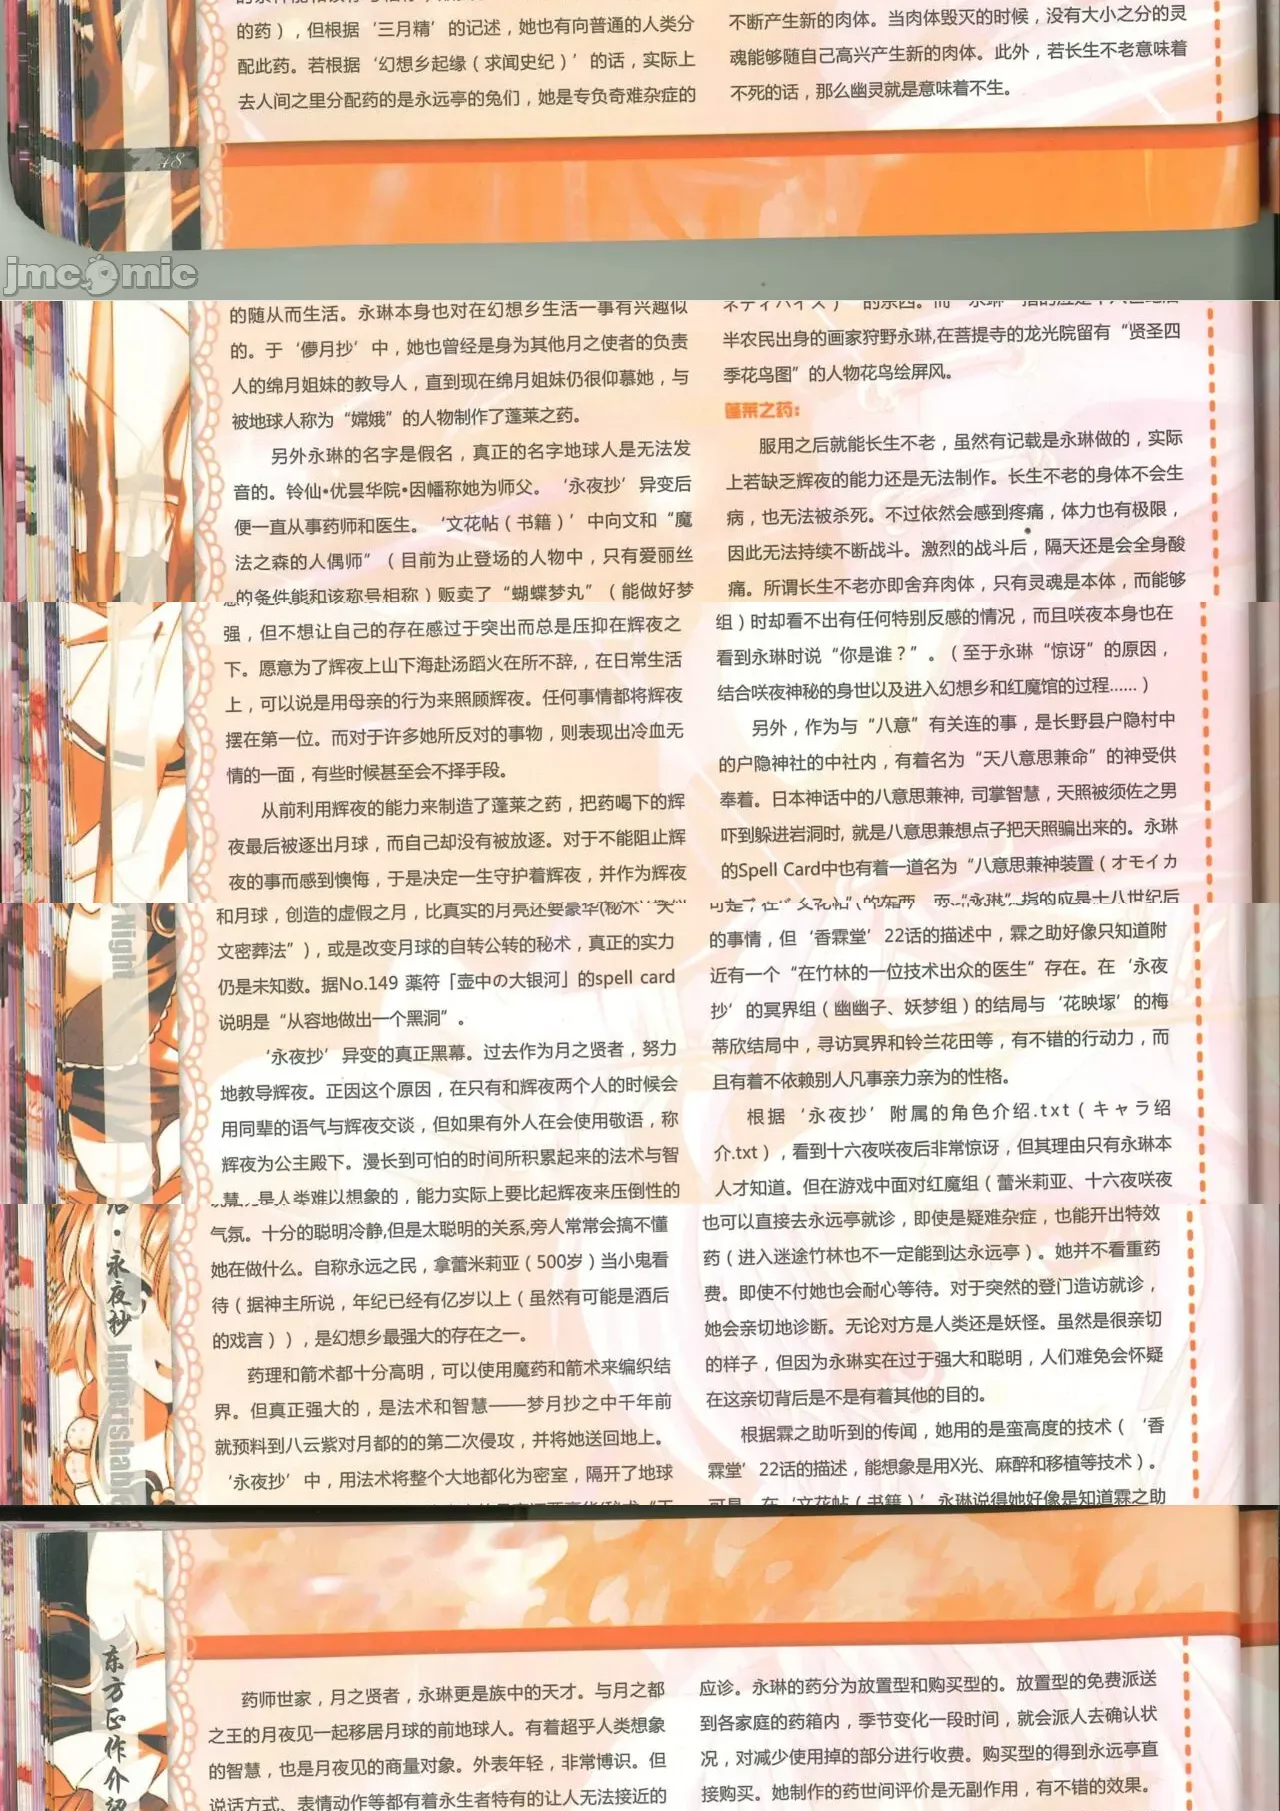 的药），但根据‘三月精’的记述，她也有向普通的人类分
配此药。若根据‘幻想乡起缘（求闻史纪）’的话，实际上
去人间之里分配药的是永远亭的兔们，她是专负奇难杂症的
不断产生新的肉体。当肉体毁灭的时候，没有大小之分的灵
魂能够随自己高兴产生新的肉体。此外，若长生不老意味着
不死的话，那么幽灵就是意味着不生。
48
jmcomic
的随从而生活。永琳本身也对在幻想乡生活一事有兴趣似
的。于‘儚月抄’中，她也曾经是身为其他月之使者的负责
人的绵月姐妹的教导人，直到现在绵月姐妹仍很仰慕她，与
被地球人称为“嫦娥”的人物制作了蓬莱之药。
另外永琳的名字是假名，真正的名字地球人是无法发
音的。铃仙•优昙华院•因幡称她为师父。‘永夜抄’异变后
便一直从事药师和医生。‘文花帖（书籍）’中向文和“魔
法之森的人偶师”（目前为止登场的人物中，只有爱丽丝
的条件能和该称号相称）贩卖了“蝴蝶梦丸”（能做好梦
半农民出身的画家狩野永琳,在菩提寺的龙光院留有“贤圣四
季花鸟图”的人物花鸟绘屏风。
蓬莱之药：
服用之后就能长生不老，虽然有记载是永琳做的，实际
上若缺乏辉夜的能力还是无法制作。长生不老的身体不会生
病，也无法被杀死。不过依然会感到疼痛，体力也有极限，
因此无法持续不断战斗。激烈的战斗后，隔天还是会全身酸
痛。所谓长生不老亦即舍弃肉体，只有灵魂是本体，而能够
强，但不想让自己的存在感过于突出而总是压抑在辉夜之
下。愿意为了辉夜上山下海赴汤蹈火在所不辞,，在日常生活
上，可以说是用母亲的行为来照顾辉夜。任何事情都将辉夜
摆在第一位。而对于许多她所反对的事物，则表现出冷血无
情的一面，有些时候甚至会不择手段。
从前利用辉夜的能力来制造了蓬莱之药，把药喝下的辉
夜最后被逐出月球，而自己却没有被放逐。对于不能阻止辉
夜的事而感到懊悔，于是决定一生守护着辉夜，并作为辉夜
组）时却看不出有任何特别反感的情况，而且咲夜本身也在
看到永琳时说“你是谁？”。（至于永琳“惊讶”的原因，
结合咲夜神秘的身世以及进入幻想乡和红魔馆的过程......）
另外，作为与“八意”有关连的事，是长野县户隐村中
的户隐神社的中社内，有着名为“天八意思兼命”的神受供
奉着。日本神话中的八意思兼神, 司掌智慧，天照被须佐之男
吓到躲进岩洞时, 就是八意思兼想点子把天照骗出来的。永琳
的Spell Card中也有着一道名为“八意思兼神装置（オモイカ
和月球，创造的虚假之月，比真实的月亮还要豪华(秘术“天
文密葬法”），或是改变月球的自转公转的秘术，真正的实力
仍是未知数。据No.149 薬符「壶中の大银河」的spell card
说明是“从容地做出一个黑洞”。
‘永夜抄’异变的真正黑幕。过去作为月之贤者，努力
地教导辉夜。正因这个原因，在只有和辉夜两个人的时候会
用同辈的语气与辉夜交谈，但如果有外人在会使用敬语，称
辉夜为公主殿下。漫长到可怕的时间所积累起来的法术与智
慧，是人类难以想象的，能力实际上要比起辉夜来压倒性的
的事情，但‘香霖堂’22话的描述中，霖之助好像只知道附
近有一个“在竹林的一位技术出众的医生”存在。在‘永夜
抄’的冥界组（幽幽子、妖梦组）的结局与‘花映塚’的梅
蒂欣结局中，寻访冥界和铃兰花田等，有不错的行动力，而
且有着不依赖别人凡事亲力亲为的性格。
根据‘永夜抄’附属的角色介绍.txt（キャラ绍
介.txt），看到十六夜咲夜后非常惊讶，但其理由只有永琳本
人才知道。但在游戏中面对红魔组（蕾米莉亚、十六夜咲夜
Night
气氛。十分的聪明冷静,但是太聪明的关系,旁人常常会搞不懂
她在做什么。自称永远之民，拿蕾米莉亚（500岁）当小鬼看
待（据神主所说，年纪已经有亿岁以上（虽然有可能是酒后
的戏言）），是幻想乡最强大的存在之一。
药理和箭术都十分高明，可以使用魔药和箭术来编织结
界。但真正强大的，是法术和智慧——梦月抄之中千年前
就预料到八云紫对月都的的第二次侵攻，并将她送回地上。
‘永夜抄’中，用法术将整个大地都化为密室，隔开了地球
也可以直接去永远亭就诊，即使是疑难杂症，也能开出特效
药（进入迷途竹林也不一定能到达永远亭）。她并不看重药
费。即使不付她也会耐心等待。对于突然的登门造访就诊，
她会亲切地诊断。无论对方是人类还是妖怪。虽然是很亲切
的样子，但因为永琳实在过于强大和聪明，人们难免会怀疑
在这亲切背后是不是有着其他的目的。
根据霖之助听到的传闻，她用的是蛮高度的技术（‘香
霖堂’22话的描述，能想象是用X光、麻醉和移植等技术）。
可是，在‘文花帖（书籍）’永琳说得她好像是知道霖之助
•永夜抄 Imperishable
东方正作介绍
药师世家，月之贤者，永琳更是族中的天才。与月之都
之王的月夜见一起移居月球的前地球人。有着超乎人类想象
的智慧，也是月夜见的商量对象。外表年轻，非常博识。但
说话方式、表情动作等都有着永生者特有的让人无法接近的
应诊。永琳的药分为放置型和购买型的。放置型的免费派送
到各家庭的药箱内，季节变化一段时间，就会派人去确认状
况，对减少使用掉的部分进行收费。购买型的得到永远亭直
接购买。她制作的药世间评价是无副作用，有不错的效果。